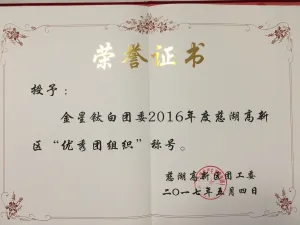 荣誉证书
授予：
金星钛白团委2016年度慈湖高新
区“优秀团组织”称号。
慈湖高新区团工委
二〇一七年五月四日